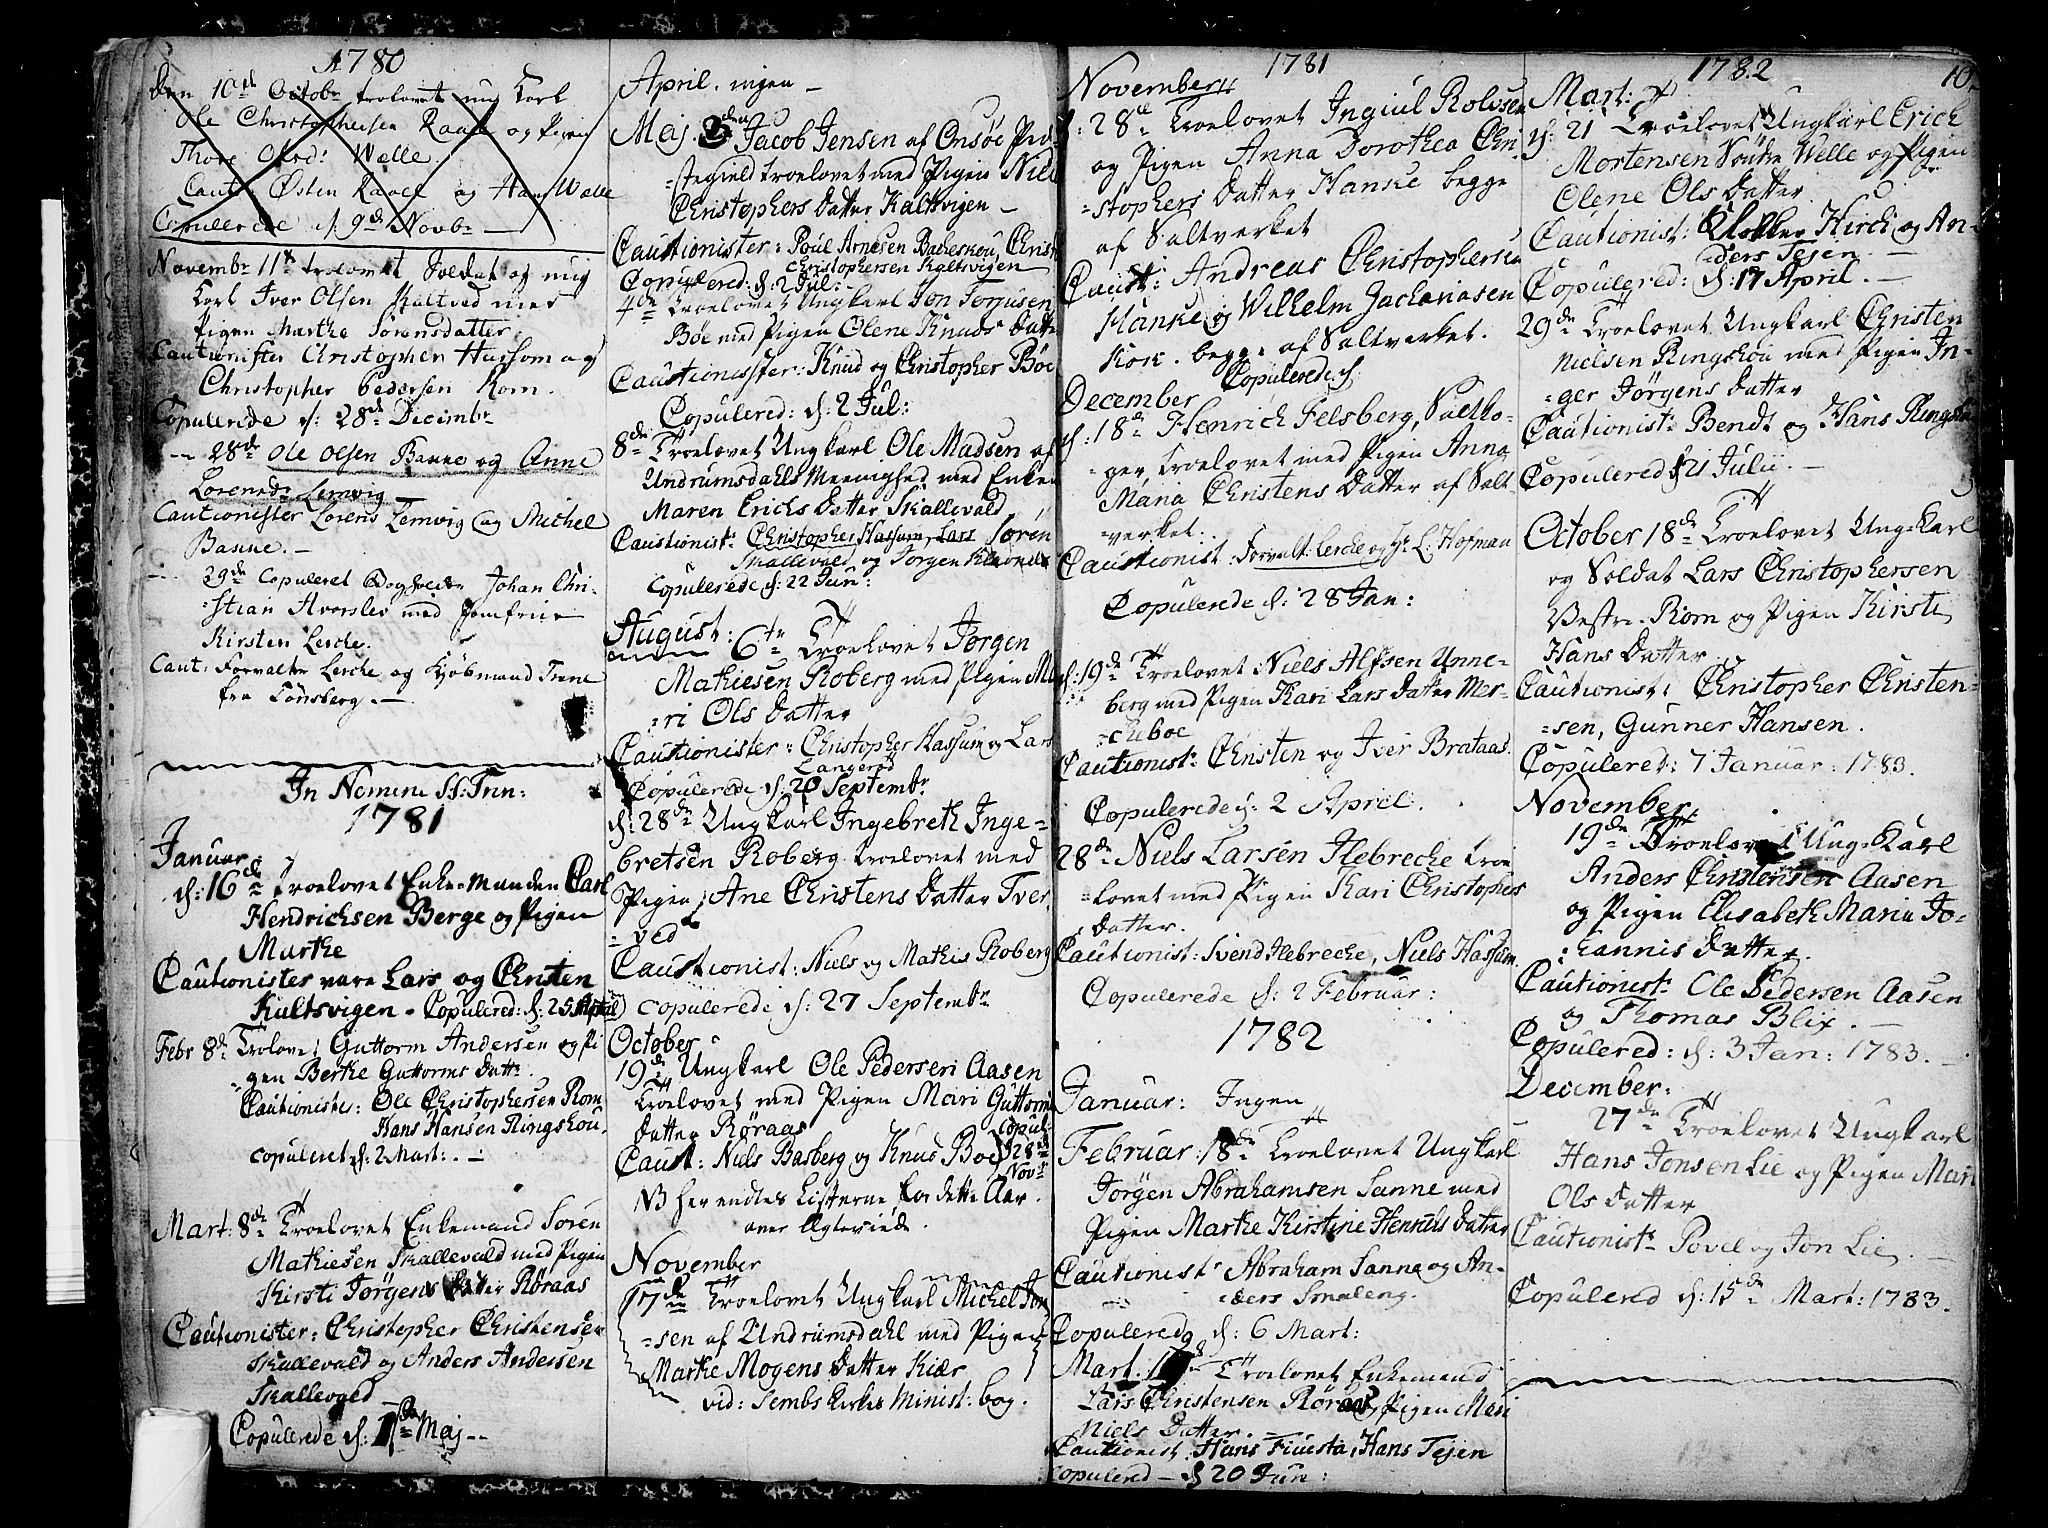 1780
den 10de Octobr trolovet ung Karl
Ole Christophersen Raael og Pigen
Thore Olsd: Welle
Caut: Østen Raael og Hans Welle
Copulerede d: 9de Novbr —
Novembr 11te trolovet Soldat og ung
Karl Iver Olsen Kultved med
Pigen Marthe Sörensdatter
Cautionister Christopher Hassom og
Christopher Pedersen Rom.
Copulerede d: 28de Decembr
— 28de Ole Olsen Banne og Anne
Lorensdr Lemvig —
Cautionister Lorens Lemvig og Michel
Banne. —
— 29de Copuleret Johan Chri-
=stian Avorslev med Jomfrue
Kirsten Lerche.
Caut: Forvalter Lerche og Kjöbmand Trene
fra Tönsberg. —
In Nomine SS: Trin:
1781
Januar
d: 16de troelovet Enke-Manden Carl
Hendrichsen Berge og Pigen
Marthe
Cautionister vare Lars og Christen
Kaltsvigen. Copulered: d: 25 April
Febr 8de Trolovet Guttorm Andersen og Pi
=gen Berthe Guttorms Dattr.
Cautionister: Ole Christophersen Rom
Hans Hansen Ringskou.
copuleret d: 2 Mart: . —
Mart: 8de Troelovet Enkemand Soren
Mathiesen Skallevald med Pigen
Kirsti Jörgens Datter Röraas
Cautionister: Christopher Christensen
Skallevald og Anders Andersen
Skallevald
Copulerede d: 1ste Maj --
April. ingen —
Maj. 3den Jacob Jensen af Onsöe Præ-
=stegield troelovet med Pigen Nille
Christophers Datter Kaltsvigen —
Cautionister: Poul Arnesen Backeskou, Christ
Christophersen Kaltsvigen
Copulered: d: 2 Jul: —
4de Troelovet Ungkarl Jon Torjusen
Böe med Pigen Olene Knuds Datter
Cautionister: Knud og Christopher Böe
Copulered: d: 2 Jul:
8de Troelovet Ungkarl Ole Madsen af
Undrumsdahls Meenighed med Enken
Maren Erichs Datter Skallevald
Cautionistr Christopher Hassum, Lars Sören
Skallevald og Jorgen
Copulerede d: 22 Jun:
August: 6te Troelovet Jörgen
Mathiesen Roberg med Pigen Ma
=ri Ols Datter
Cautionister: Christopher Hassum og Lars
Langeröd
Copulerede d: 20 Septembr.
d: 28de Ungkarl Ingebreth Inge=
bretsen Roberg troelovet med
Pigen Ane Christens Datter Tver
=ved
Cautionist: Niels og Mathis Roberg
copulerede d: 27 Septembr
October
19de Ungkarl Ole Pedersen Aasen
Troelovet med Pigen Mari Guttorms
Datter Röraas
Copul:
28de
Novr
Caust: Niels Basberg og Knud Böe
NB her endtes Listerne for dette Aar.
over Ægteviede.
November
17de Troelovet Ungkarl Michel Jon
=sen af Undrumsdahl med Pigen
Marthe Mogens Datter Kiær
vid: Sembs Kirkes Minist: bog.
1781
November
d: 28de Troelovet Ingiul Rolvsen
og Pigen Anna Dorothea Chri
=stophers Datter Hanske begge
af Saltverket
Caust: Andreas Christophersen
Hanke og Wilhelm Zachariasen
Kok. begge af Saltverket.
Copulerede d:
December
d: 18de Henrich Felsberg, Saltko-
=ger, troelovet med Pigen Anna
Maria Christens Datter af Salt-
=verket.
Cautionist: Forvalt: Lerche og Hr L: Hofman
Copulerede d: 28 Jan:
d: 19de Troelovet Niels Alfsen Unne-
berg med Pigen Kari Lars Datter Mer-
=cheboe
Cautionistr Christen og Iver Brataas.
Copulerede d: 2 April.
28de Niels Larsen Ilebrecke troe
=lovet med Pigen Kari Christophers
Datter.
Cautionist: Svend Ilebrecke, Niels Hassum.
Copulerede d: 2 Februar:
1782
Januar: Ingen
Februar: 18de Troelovet Ungkarl
Jörgen Abrahamsen Sanne med
Pigen Marthe Kirstine Henrichs Datter
Cautionistr Abraham Sanne og An-
=ders Smaleng.
Copulered d: 6 Mart:
Mart: Troelovet Enkemand
Lars Christensen Röraas og Pigen Mari
Niels Datter. —
Cautionist: Hans Fiuesta, Hans Tejen
Copulered — d 20 Jun:
1782
10.
Mart:
d: 21 Troelovet Ungkarl Erich
Mortensen Söndre Welle og Pigen
Olene Ols Datter
Cautionist: Hirch og An-
ders Tejen. —
Copulered: d: 17 April. —
29de Troelovet Ungkarl Christen
Nielsen Ringskou med Pigen In-
=ger Jörgens Datter
Cautionistr Bendt og Hans Ringskou
Copulered d 21 Julii. —
October 18de Troelovet Ung=Karl
og Soldat Lars Christophersen
Vestre-Rom og Pigen Kirsti
Hans Datter
Cautionist: Christopher Christen-
=sen, Gunner Hansen.
Copulered: 7 Januar: 1783.
November
19de Troelovet Ung=Karl
Anders Christensen Aasen
og Pigen Elisabeth Maria Jo-
=hannis Datter.
Cautionistr Ole Pedersen Aasen
og Thomas Blix. —
Copulered: d: 3 Jan: 1783. —
December:
27de Troelovet Ungkarl
Hans Jonsen Lie og Pigen Mari
Ols Datter
Cautionistr Povel og Jon Lie. —
Copulered d: 15de Mart: 1783.